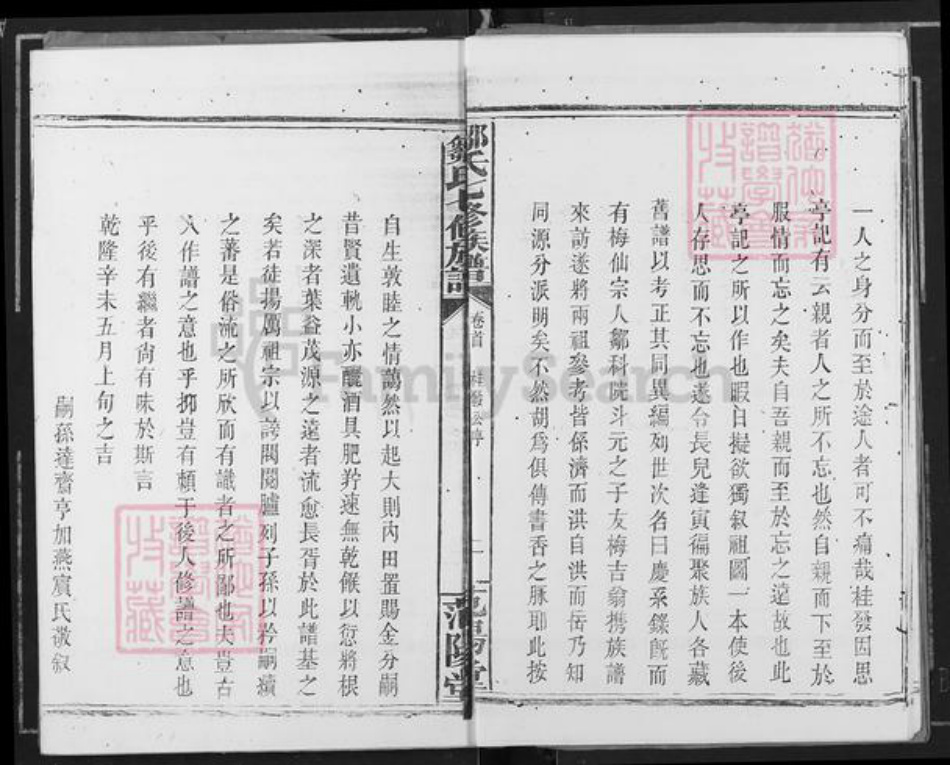 一人之身分而至於途人者可不痛哉桂發因思
亭記有云親者人之所不忘也然自親而下至於
服情而忘之矣夫自吾親而至於忘之遠故也此
亭記之所以作也暇日擬欲獨叙祖圖一本使後
人存思而不忘也遂令長兒逢寅徧聚族人各藏
舊譜以考正其同異編列世次名曰慶系鏷旣而
有梅仙宗人鄒科院斗元之子友梅吉翁携族譜
來訪遂將兩祖參考皆係濟而洪自洪而岳乃知
同源分派明矣不然胡爲俱傳書香之脉耶此按
鄒氏七修族譜
卷首
桂發公序
二
范陽堂
自生敦睦之情藹然以起大則內田置賜金分嗣
昔賢遺軌小亦釃酒具肥羜速無乾餱以愆將根
之深者葉益茂源之遠者流愈長胥於此譜基之
矣若徒揚厲祖宗以誇閥閱臚列子孫以矜嗣續
之蕃是俗流之所欣而有識者之所鄙也夫豈古
人作譜之意也乎抑豈有頼于後人修譜之意也
乎後有繼者尙有味於斯言
乾隆辛未五月上旬之吉
嗣孫達齋亨加燕賔氏敬叙
FamilySearch